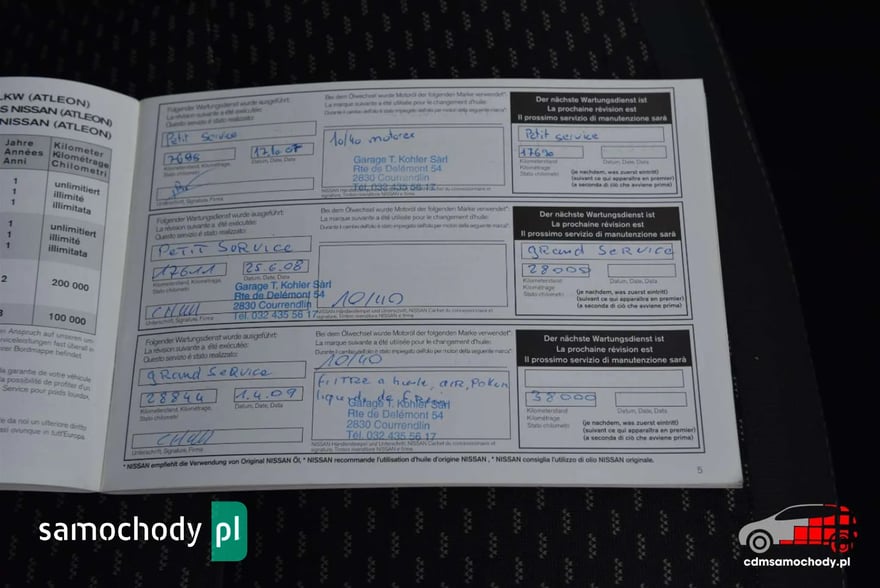 LKW (ATLEON)
S NISSAN (ATLEON)
NISSAN (ATLEON)
Jahre
Années
Anni
Kilometer
Kilométrage
Chilometri
1
1
1
unlimitiert
illimité
illimitata
1
1
1
unlimitiert
illimité
illimitata
2
200 000
100 000
Folgender Wartungsdienst wurde ausgeführt:
La révision suivante a été exécutée:
Questo servizio è stato realizzato:
Petit Service
7695
17.10.07
Kilometerstand, Kilométrage,
Stato chilometri
Datum, Date, Data
Unterschrift, Signature, Firma
Bei dem Ölwechsel wurde Motoröl der folgenden Marke verwendet*:
La marque suivante a été utilisée pour le changement d'huile:
Durante il cambio dell'olio è stato impiegato dell'olio per motori della seguente marca*:
10/40 motorex
Garage T. Kohler Sàrl
Rte de Delémont 54
2830 Courrendlin
Tél. 032 435 56 17
Der nächste Wartungsdienst ist
La prochaine révision est
Il prossimo servizio di manutenzione sarà
Petit service
17690
Kilometerstand
Kilométrage
Stato chilometri
Datum, Date, Data
(je nachdem, was zuerst eintritt)
(suivant ce qui apparaîtra en premier)
(a seconda di ciò che avviene prima)
Folgender Wartungsdienst wurde ausgeführt:
La révision suivante a été exécutée:
Questo servizio è stato realizzato:
Petit Service
17611
25.6.08
Kilometerstand, Kilométrage,
Stato chilometri
Datum, Date, Data
Unterschrift, Signature, Firma
Garage T. Kohler Sàrl
Rte de Delémont 54
2830 Courrendlin
Tél. 032 435 56 17
Bei dem Ölwechsel wurde Motoröl der folgenden Marke verwendet*:
La marque suivante a été utilisée pour le changement d'huile:
Durante il cambio dell'olio è stato impiegato dell'olio per motori della seguente marca*:
10/40
Der nächste Wartungsdienst ist
La prochaine révision est
Il prossimo servizio di manutenzione sarà
grand Service
28000
Kilometerstand
Kilométrage
Stato chilometri
Datum, Date, Data
(je nachdem, was zuerst eintritt)
(suivant ce qui apparaîtra en premier)
(a seconda di ciò che avviene prima)
Folgender Wartungsdienst wurde ausgeführt:
La révision suivante a été exécutée:
Questo servizio è stato realizzato:
grand Service
28844
1.4.09
Kilometerstand, Kilométrage,
Stato chilometri
Datum, Date, Data
Unterschrift, Signature, Firma
Bei dem Ölwechsel wurde Motoröl der folgenden Marke verwendet*:
La marque suivante a été utilisée pour le changement d'huile:
Durante il cambio dell'olio è stato impiegato dell'olio per motori della seguente marca*:
10/40
Filtre a huile, air, Polen
liquide de Frein
Garage T. Kohler Sàrl
Rte de Delémont 54
2830 Courrendlin
Tél. 032 435 56 17
Der nächste Wartungsdienst ist
La prochaine révision est
Il prossimo servizio di manutenzione sarà
38000
Kilometerstand
Kilométrage
Stato chilometri
Datum, Date, Data
(je nachdem, was zuerst eintritt)
(suivant ce qui apparaîtra en premier)
(a seconda di ciò che avviene prima)
* NISSAN empfiehlt die Verwendung von Original NISSAN Öl, * NISSAN recommande l'utilisation d'huile d'origine NISSAN, * NISSAN consiglia l'utilizzo di olio NISSAN originale.
5
samochody pl
cdmsamochody.pl